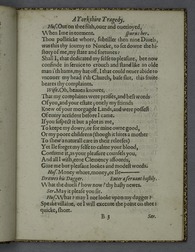 A Yorkshire Tragedy.
Hus. Out on thee slut, one unstrumpeted,
When I me in torment. spurns her.
Thou politicke whore, subtiller then nine Deuils,
was this thy iourny to Nuncke, to set downe the hi-
story of me, my state and fortunes:
Shall I, that dedicated my selfe to pleasure, be now
confinde in seruice to crouch and stand like an olde
man ith hams, my hat off, I that could neuer abide to
vncouer my head ith Church, base slut, this fruite
beares thy complaints.
Wife. Oh, heauen knowes,
That my complaints were praises, and best wordes
Of you, and your estate; onely my friends
Knew of your morgagde Lands, and were possest
Of euery accident before I came.
If you suspect it but a plot in me,
To keepe my dowry, or for mine owne good,
Or my poore childrens (though it suites a mother
To shew a naturall care in their reliefes)
Yet Ile forget my selfe to calme your blood,
Consume it, as your pleasure counsels you,
And all I wish, eene Clemency affoords,
Giue me but pleasant lookes and modest words.
Hus. Money whore, money, or Ile
Drawes his Dagger. Enter a seruant hastily.
What the deuil? how now? thy hasty newes.
Ser. May it please you sir.
Hus. What? may I not looke vpon my dagger?
Speake villaine, or I will execute the point on thee:
quicke, short.
B 3 Ser.